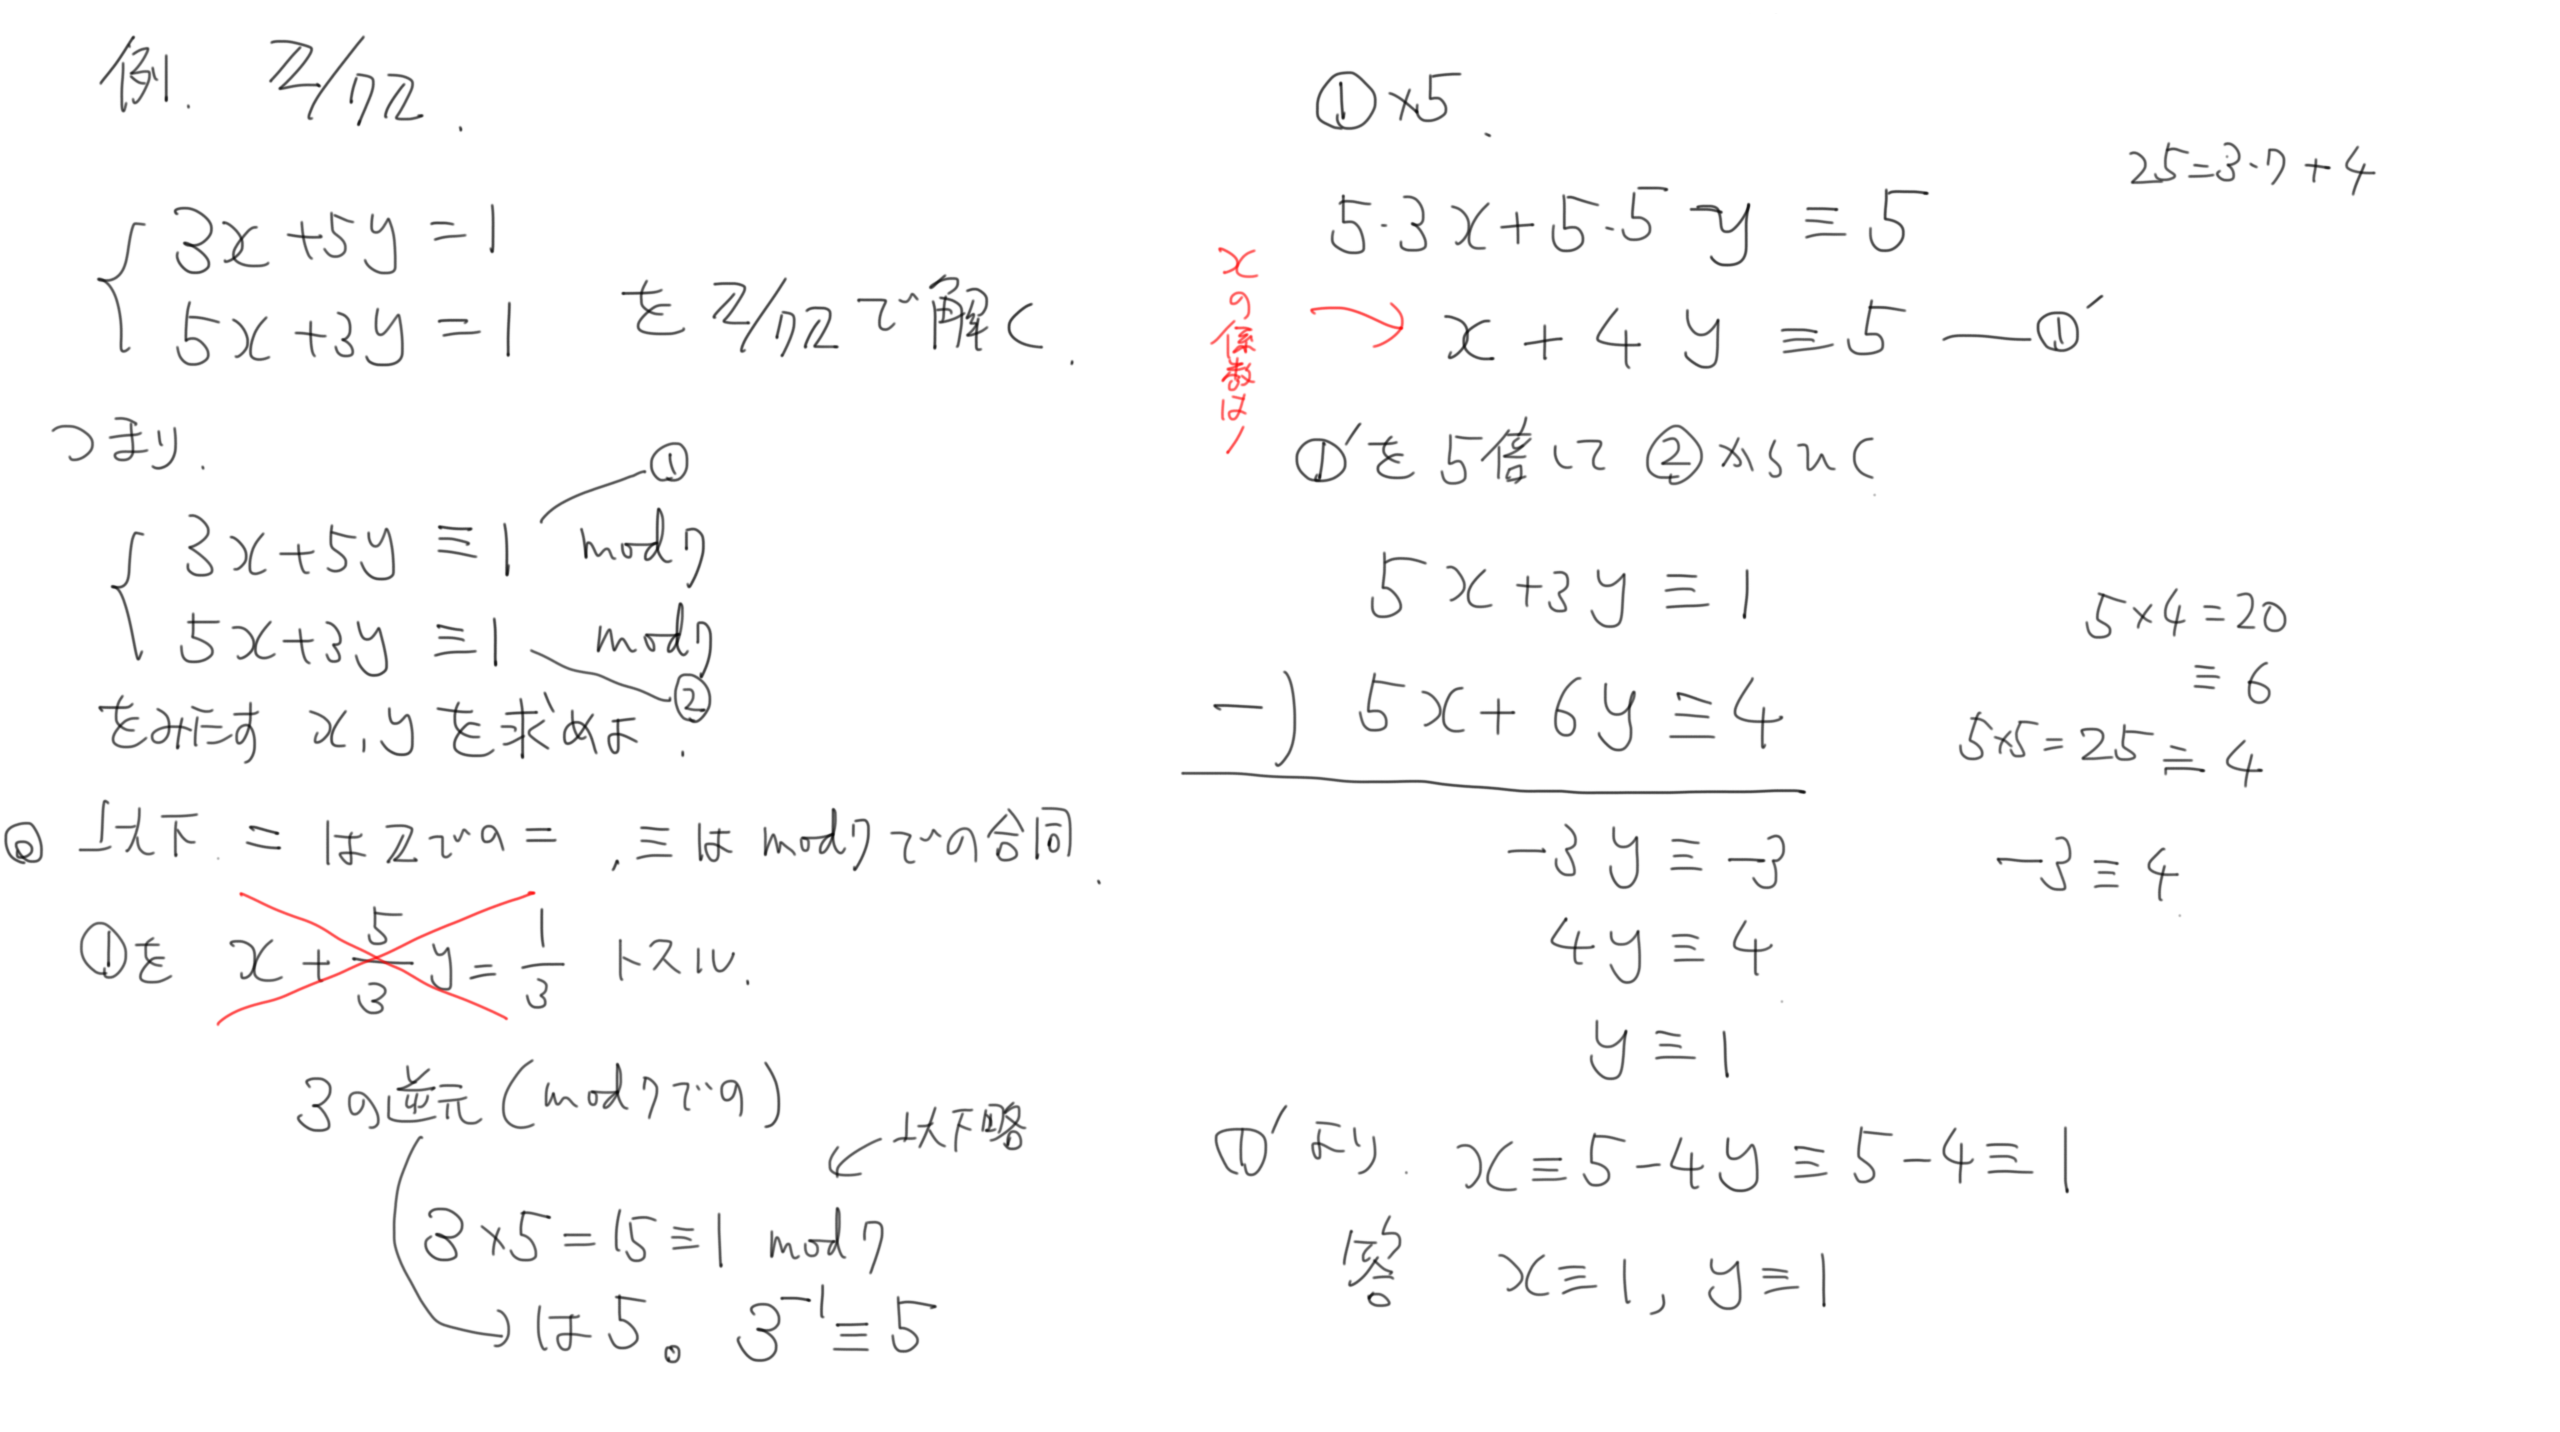 例. ℤ/7ℤ.
3x+5y=1
5x+3y=1 をℤ/7ℤで解く.
つまり.
3x+5y≡1 mod7 ①
5x+3y≡1 mod7 ②
をみたす x,yを求めよ.
◎ 以下. =はℤでの=, ≡はmod7での合同.
①を x+5/3 y=1/3 トスル.
3の逆元(mod7での)
以下略
3×5=15≡1 mod7
は5。 3⁻¹≡5
①×5.
25=3・7+4
5・3x+5・5y≡5
xの係数は1
x+4y≡5 ―①′
①′を5倍して②からひく
5x+3y≡1
5×4=20
≡6
-) 5x+6y≡4
5×5=25≡4
-3y≡-3
-3≡4
4y≡4
y≡1
①′より. x≡5-4y≡5-4≡1
答 x≡1, y≡1